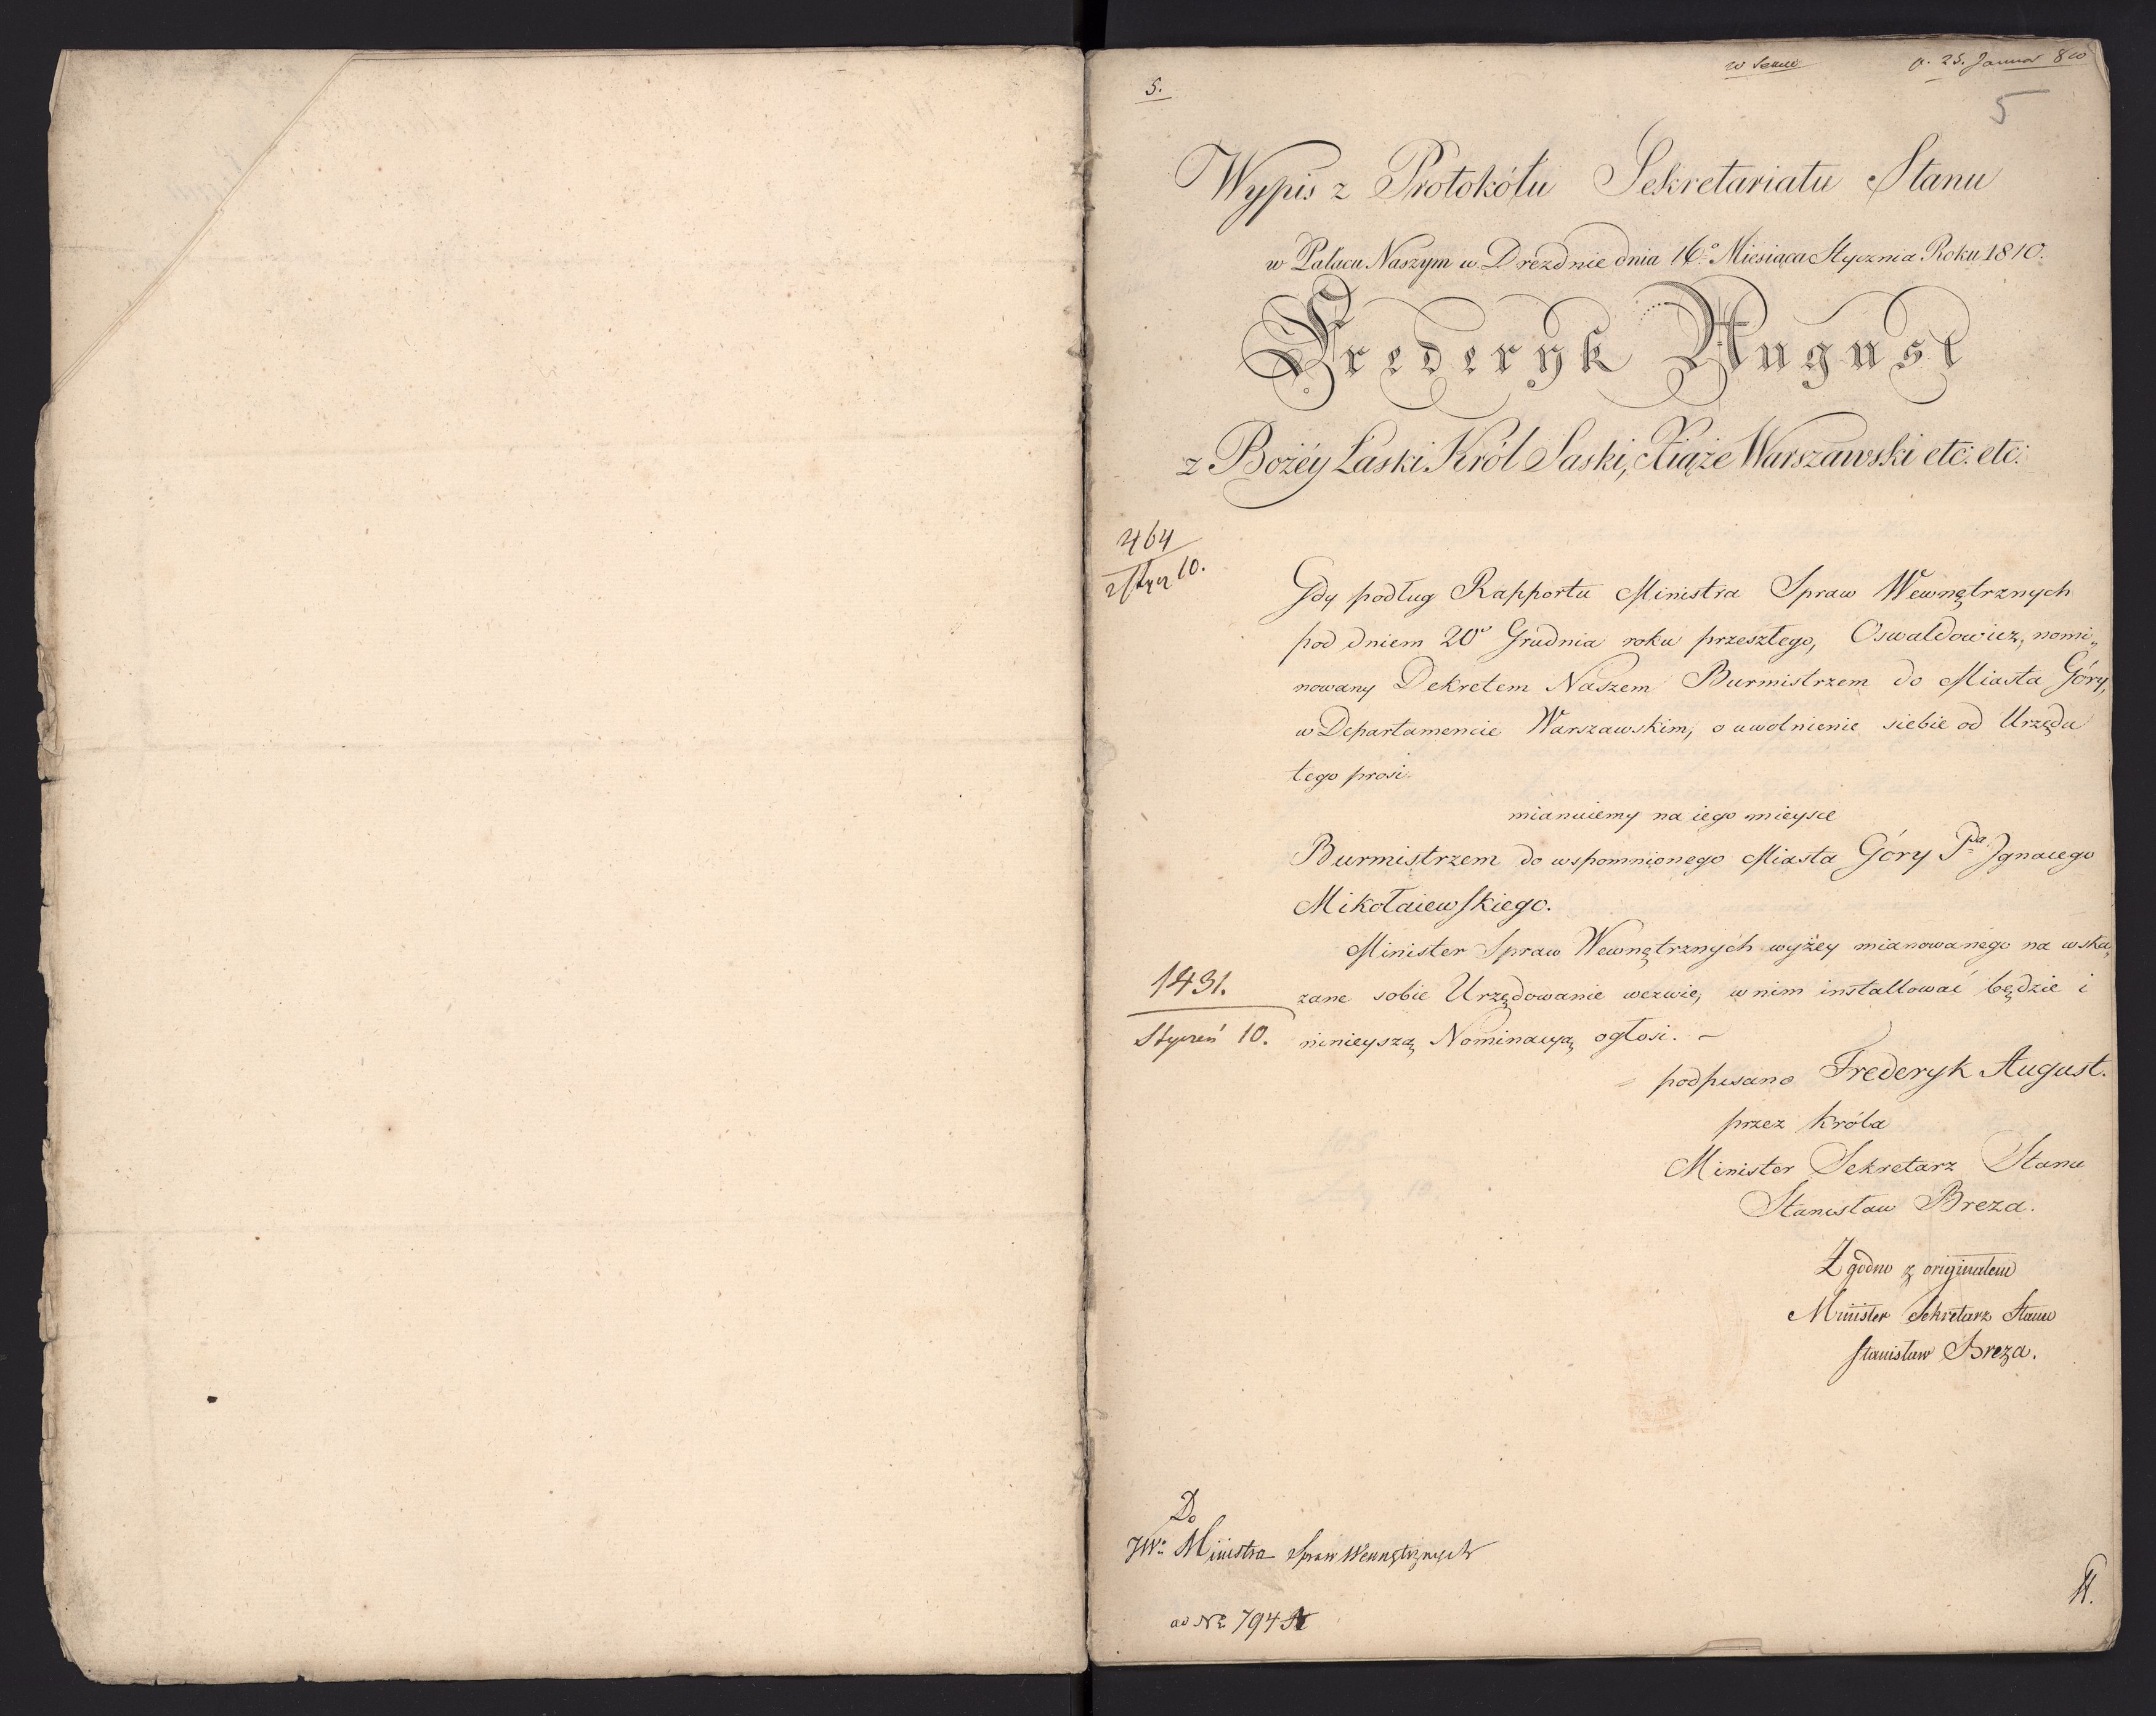 5.
p. 25. Januar 810
5
Wypis z Protokółu Sekretariatu Stanu
w Pałacu Naszym w Dreznie dnia 16º Miesiąca Stycznia Roku 1810.
Frederyk August
z Bożéy Łaski Król Saski, Xiąże Warszawski etc: etc:
464
Stycz 10.
Gdy podług Rapportu Ministra Spraw Wewnętrznych
pod dniem 20º Grudnia roku przeszłego, Oswaldowicz, nomi„
nowany Dekretem Naszem Burmistrzem do Miasta Góry,
w Departamencie Warszawskim, o uwolnienie siebie od Urzędu
tego prosi.
mianuiemy na iego mieysce
Burmistrzem do wspomnionego Miasta Góry Pna Jgnacego
Mikołaiewskiego.
Minister Spraw Wewnętrznych wyżey mianowanego na wska„
zane sobie Urzędowanie wezwie, w nim installować będzie i
ninieyszą Nominacyą ogłosi. –
1431.
Styczeń 10.
podpisano Frederyk August.
przez Króla
Minister Sekretarz Stanu
Stanisław Breza.
Zgodno z originałem
Minister Sekretarz Stanu
Stanisław Breza.
Do
JWº Ministra Spraw Wewnętrznych
ad Nº 794